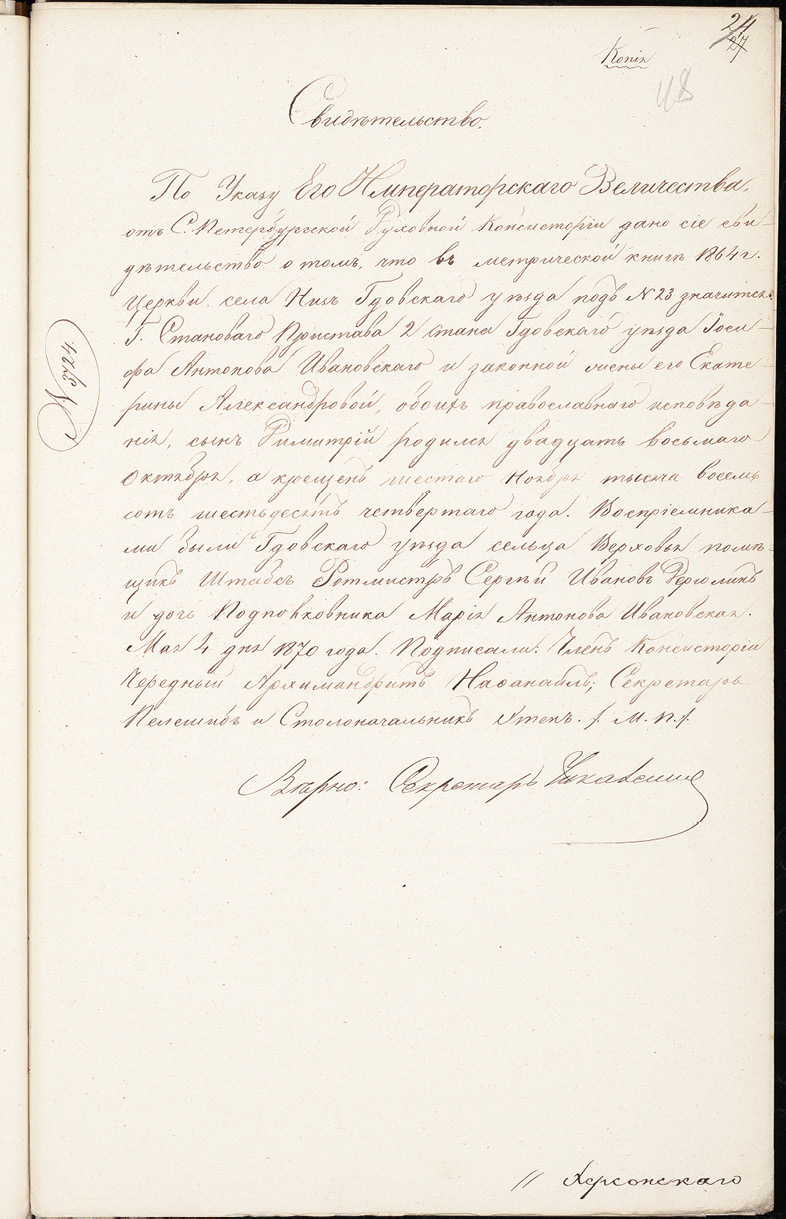 24
27
Копія
48
Свидѣтельство.
По Указу Его Императорскаго Величества,
отъ С. Петербургской Духовной Консисторіи дано сіе сви-
дѣтельство о томъ, что въ метрической книгѣ 1864 г.
церкви села Низъ Гдовскаго уѣзда подъ № 23 значится:
Г. Становаго Пристава 2 стана Гдовскаго уѣзда Іоси-
фа Антонова Ивановскаго и законной жены его Екате-
рины Александровой, обоихъ православнаго исповѣда-
нія, сынъ Димитрій родился двадцать восьмаго
Октября, а крещенъ шестаго Ноября тысяча восемь
сотъ шестьдесятъ четвертаго года. Воспріемника-
ми были Гдовскаго уѣзда сельца Верховья помѣ-
щикъ Штабсъ Ротмистръ Сергѣй Ивановъ Дерюгинъ
и дочь Подполковника Марія Антонова Ивановская.
Мая 4 дня 1870 года. Подписали: Членъ Консисторіи
Чередный Архимандритъ Наѳанаилъ; Секретарь
и Столоначальникъ /. М. П. /.
Вѣрно: Секретарь
№ 3724
// Херсонскаго